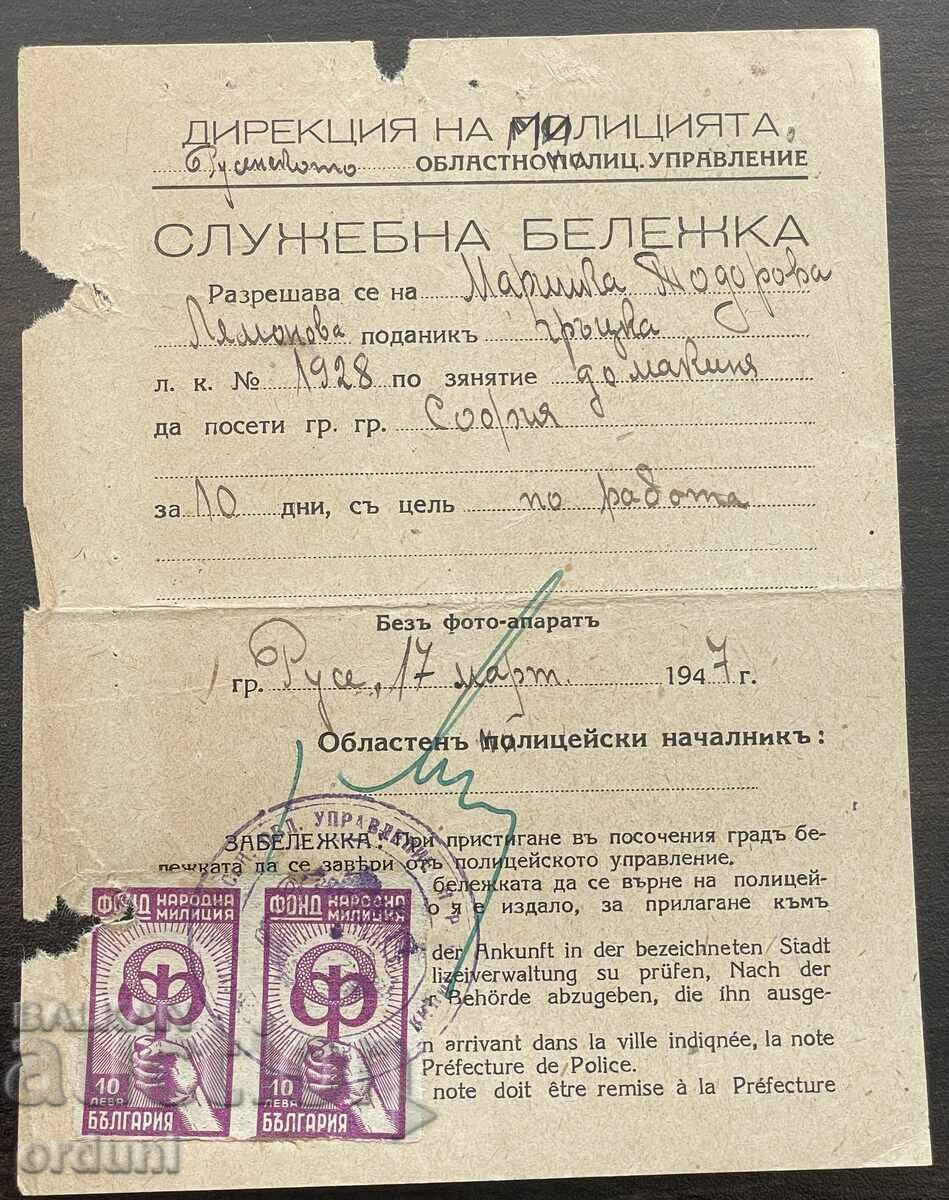 ДИРЕКЦИЯ НА МИЛИЦИЯТА
Русенското ОБЛАСТНО МИЛИЦ. УПРАВЛЕНИЕ
СЛУЖЕБНА БЕЛЕЖКА
Разрешава се на Марийка Тодорова
Лямонова поданикъ гръцка
л. к. № 1928 по зянятие домакиня
да посети гр. гр. София
за 10 дни, съ цель по работа
Безъ фото-апаратъ
гр. Русе, 17 март 1947 г.
Областенъ милицейски началникъ:
ЗАБЕЛЕЖКА: При пристигане въ посочения градъ бе-
лежката да се завери отъ полицейското управление.
бележката да се върне на полицей-
о я е издало, за прилагане къмъ
der Ankunft in der bezeichneten Stadt
lizeiverwaltung su prüfen, Nach der
Behörde abzugeben, die ihn ausge-
n arrivant dans la ville indiqnée, la note
Préfecture de Police.
note doit être remise à la Préfecture
ФОНД НАРОДНА МИЛИЦИЯ
10 ЛЕВА
БЪЛГАРИЯ
ФОНД НАРОДНА МИЛИЦИЯ
10 ЛЕВА
БЪЛГАРИЯ
ОБЛ. УПРАВЛЕНИЕ
BALKAN
auction
orduni